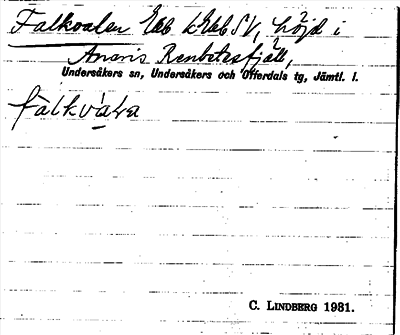 Falkvalen Ebb LEbb SV, höjd i
Anaris Renbetesfjäll,
Undersåkers sn, Undersåkers och Offerdals tg, Jämtl. l.
falkvàɫa
C. LINDBERG 1931.